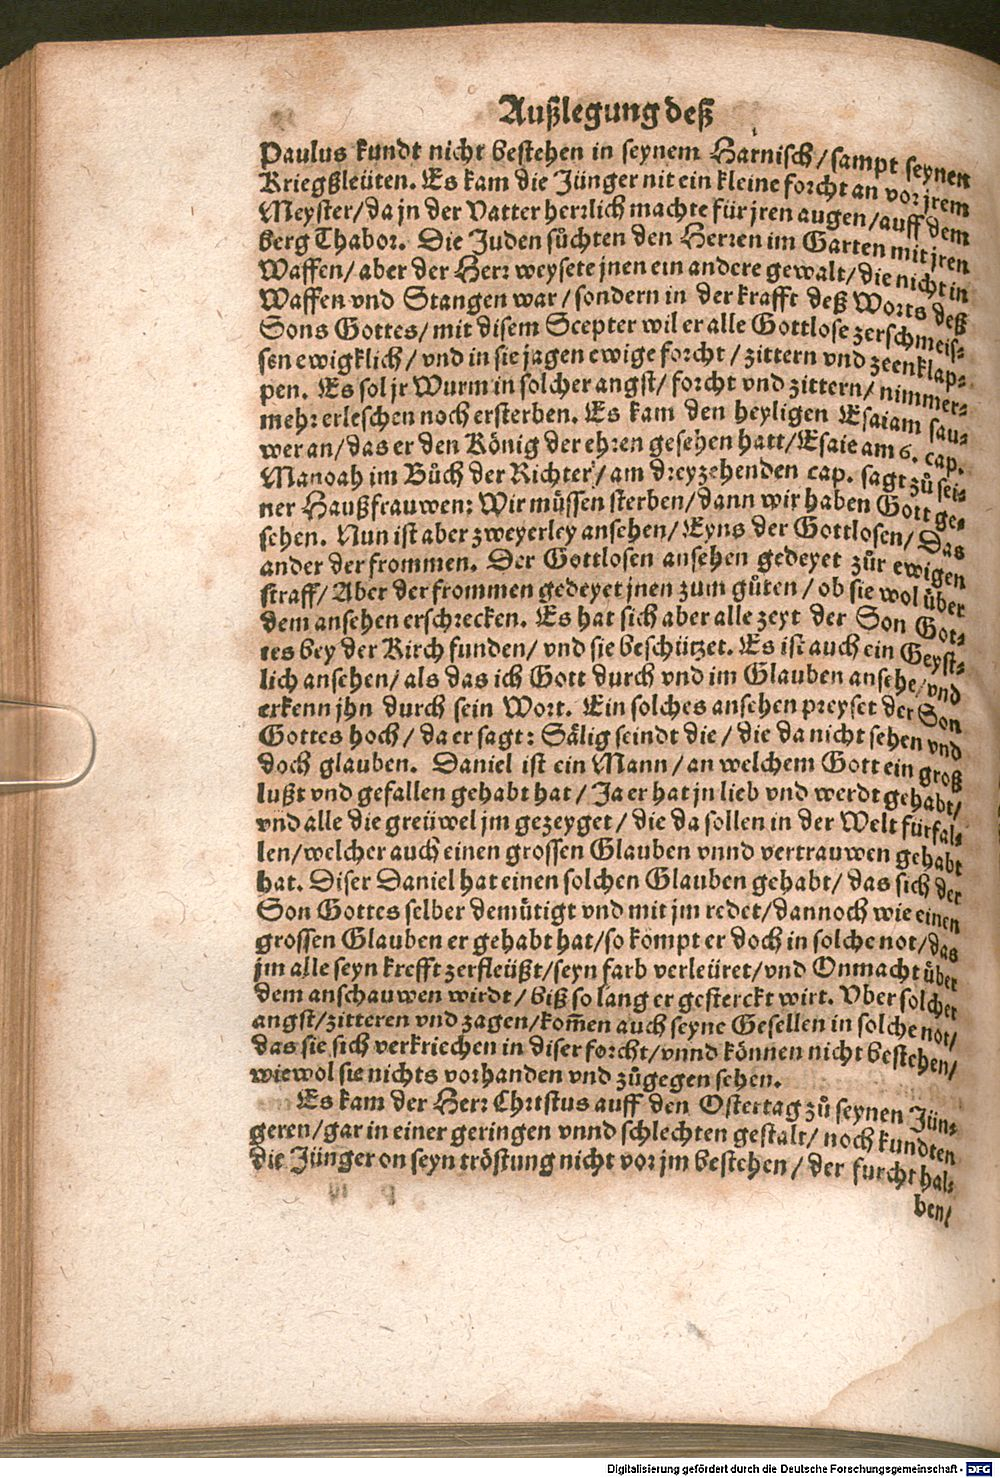 Außlegung deß
Paulus kundt nicht bestehen in seynem Harnisch/ sampt seynen
Kriegßleüten. Es kam die Jünger nit ein kleine forcht an vor jrem
Meyster/ da jn der Vatter herrlich machte für jren augen/ auff dem
berg Thabor. Die Juden sůchten den Herren im Garten mit jren
Waffen/ aber der Herr weysete jnen ein andere gewalt/ die nicht in
Waffen vnd Stangen war/ sondern in der krafft deß Worts deß
Sons Gottes/ mit disem Scepter wil er alle Gottlose zerschmeis-
sen ewigklich/ vnd in sie jagen ewige forcht/ zittern vnd zeenklap-
pen. Es sol jr Wurm in solcher angst/ forcht vnd zittern/ nimmer-
mehr erleschen noch ersterben. Es kam den heyligen Esaiam sau-
wer an/ das er den König der ehren gesehen hatt/ Esaie am 6. cap.
Manoah im Bůch der Richter/ am dreyzehenden cap. sagt zů sei-
ner Haußfrauwen: Wir müssen sterben/ dann wir haben Gott ge-
sehen. Nun ist aber zweyerley ansehen/ Eyns der Gottlosen/ Das
ander der frommen. Der Gottlosen ansehen gedeyet zůr ewigen
straff/ Aber der frommen gedeyet jnen zum gůten/ ob sie wol über
dem ansehen erschrecken. Es hat sich aber alle zeyt der Son Got-
tes bey der Kirch funden/ vnd sie beschützet. Es ist auch ein Geyst-
lich ansehen/ als das ich Gott durch vnd im Glauben ansehe/ vnd
erkenn jhn durch sein Wort. Ein solches ansehen preyset der Son
Gottes hoch/ da er sagt: Sälig seindt die/ die da nicht sehen vnd
doch glauben. Daniel ist ein Mann/ an welchem Gott ein groß
lußt vnd gefallen gehabt hat/ Ja er hat jn lieb vnd werdt gehabt/
vnd alle die greüwel jm gezeyget/ die da sollen in der Welt fürfal-
len/ welcher auch einen grossen Glauben vnnd vertrauwen gehabt
hat. Diser Daniel hat einen solchen Glauben gehabt/ das sich der
Son Gottes selber demütigt vnd mit jm redet/ dannoch wie einen
grossen Glauben er gehabt hat/ so kompt er doch in solche not/ das
jm alle seyn krefft zerfleüßt/ seyn farb verleüret/ vnd Onmacht über
dem anschauwen wirdt/ biß so lang er gesterckt wirt. Vber solcher
angst/ zitteren vnd zagen/ kom̃en auch seyne Gesellen in solche not/
das sie sich verkriechen in diser forcht/ vnnd können nicht bestehen/
wiewol sie nichts vorhanden vnd zůgegen sehen.
Es kam der Herr Christus auff den Ostertag zů seynen Jün-
geren/ gar in einer geringen vnnd schlechten gestalt/ noch kundten
die Jünger on seyn tröstung nicht vor jm bestehen/ der furcht hal-
ben/
Digitalisierung gefördert durch die Deutsche Forschungsgemeinschaft - DFG